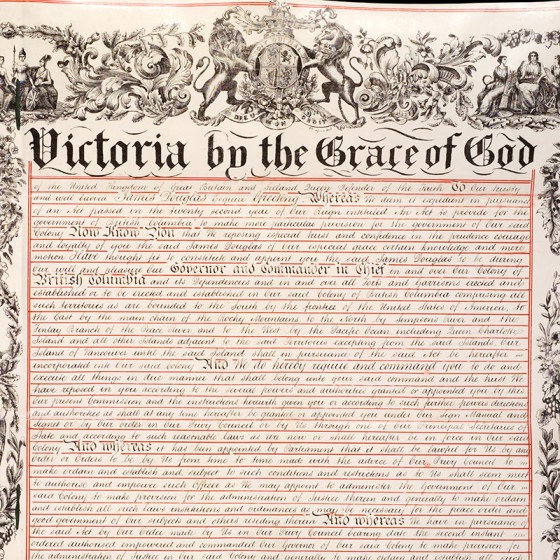 Victoria by the Grace of God
of the United Kingdom of Great Britain and Ireland Queen Defender of the Faith To Our trusty
and well beloved James Douglas Esquire Greeting Whereas We deem it expedient in pursuance
of an Act passed in the twenty second year of Our Reign intituled An Act to provide for the
government of British Columbia to make more particular provision for the government of our said
Colony Now Know You that We reposing especial trust and confidence in the prudence courage
and loyalty of you the said James Douglas of our especial grace certain knowledge and mere
motion Have thought fit to constitute and appoint you the said James Douglas to be during
Our will and pleasure Our Governor and Commander in Chief in and over Our Colony of
British Columbia and its Dependencies and in and over all Forts and Garrisons erected and
established or to be erected and established in Our said Colony of British Columbia comprising all
such territories as are bounded to the South by the frontier of the United States of America to
the East by the main chain of the Rocky Mountains to the North by Simpsons River and the
Finlay Branch of the Peace River and to the West by the Pacific Ocean including Queen Charlottes
Island and all other Islands adjacent to the said Territories excepting from the said Islands Our
Island of Vancouver until the said Island shall in pursuance of the said Act be hereafter
incorporated into Our said Colony And We do hereby require and command you to do and
execute all things in due manner that shall belong unto your said command and the trust We
have reposed in you according to the several powers and authorities granted or appointed you by this
Our present Commission and the instructions herewith given you or according to such further powers directions
and authorities as shall at any time hereafter be granted or appointed you under Our Sign Manual and
Signet or by Our order in Our Privy Council or by Us through one of Our Principal Secretaries of
State and according to such reasonable laws as are now or shall hereafter be in force in our said
Colony And whereas it has been appointed by Parliament that it shall be lawful for Us by any
order or orders to be by Us from time to time made with the advice of Our Privy Council to
make ordain and establish and subject to such conditions and restrictions as to Us shall seem meet
to authorise and empower such officer as We may appoint to administer the Government of Our
said Colony to make provision for the administration of Justice therein and generally to make ordain
and establish all such laws institutions and ordinances as may be necessary for the peace order and
good government of Our subjects and others residing therein And whereas We have in pursuance of
the said Act by Our Order made by Us in Our Privy Council bearing date the second instant
ordered authorised empowered and commanded Our Governor of our said Colony to make provision for
the administration of Justice in Our said Colony and generally to make ordain